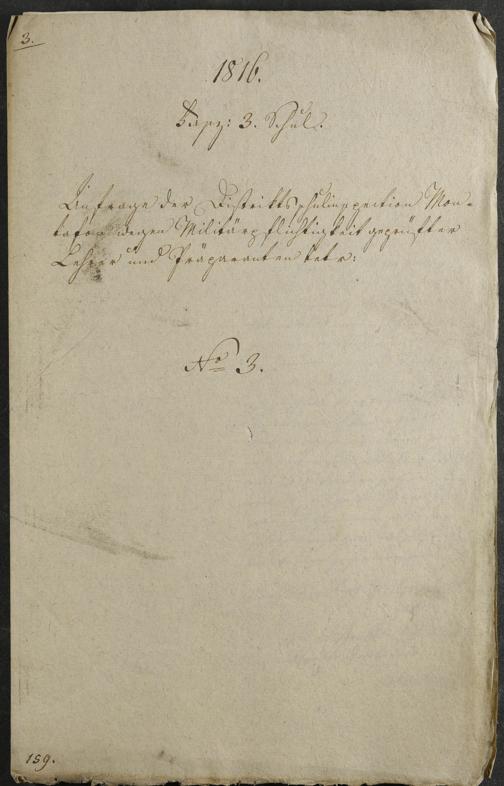 3.
1816.
3. Schul.
Anfrage der Distriktsschulinspection Mon-
tafon wegen Militärpflichtigkeit geprüfter
Lehrer und Präparanten betr:
No 3.
159.